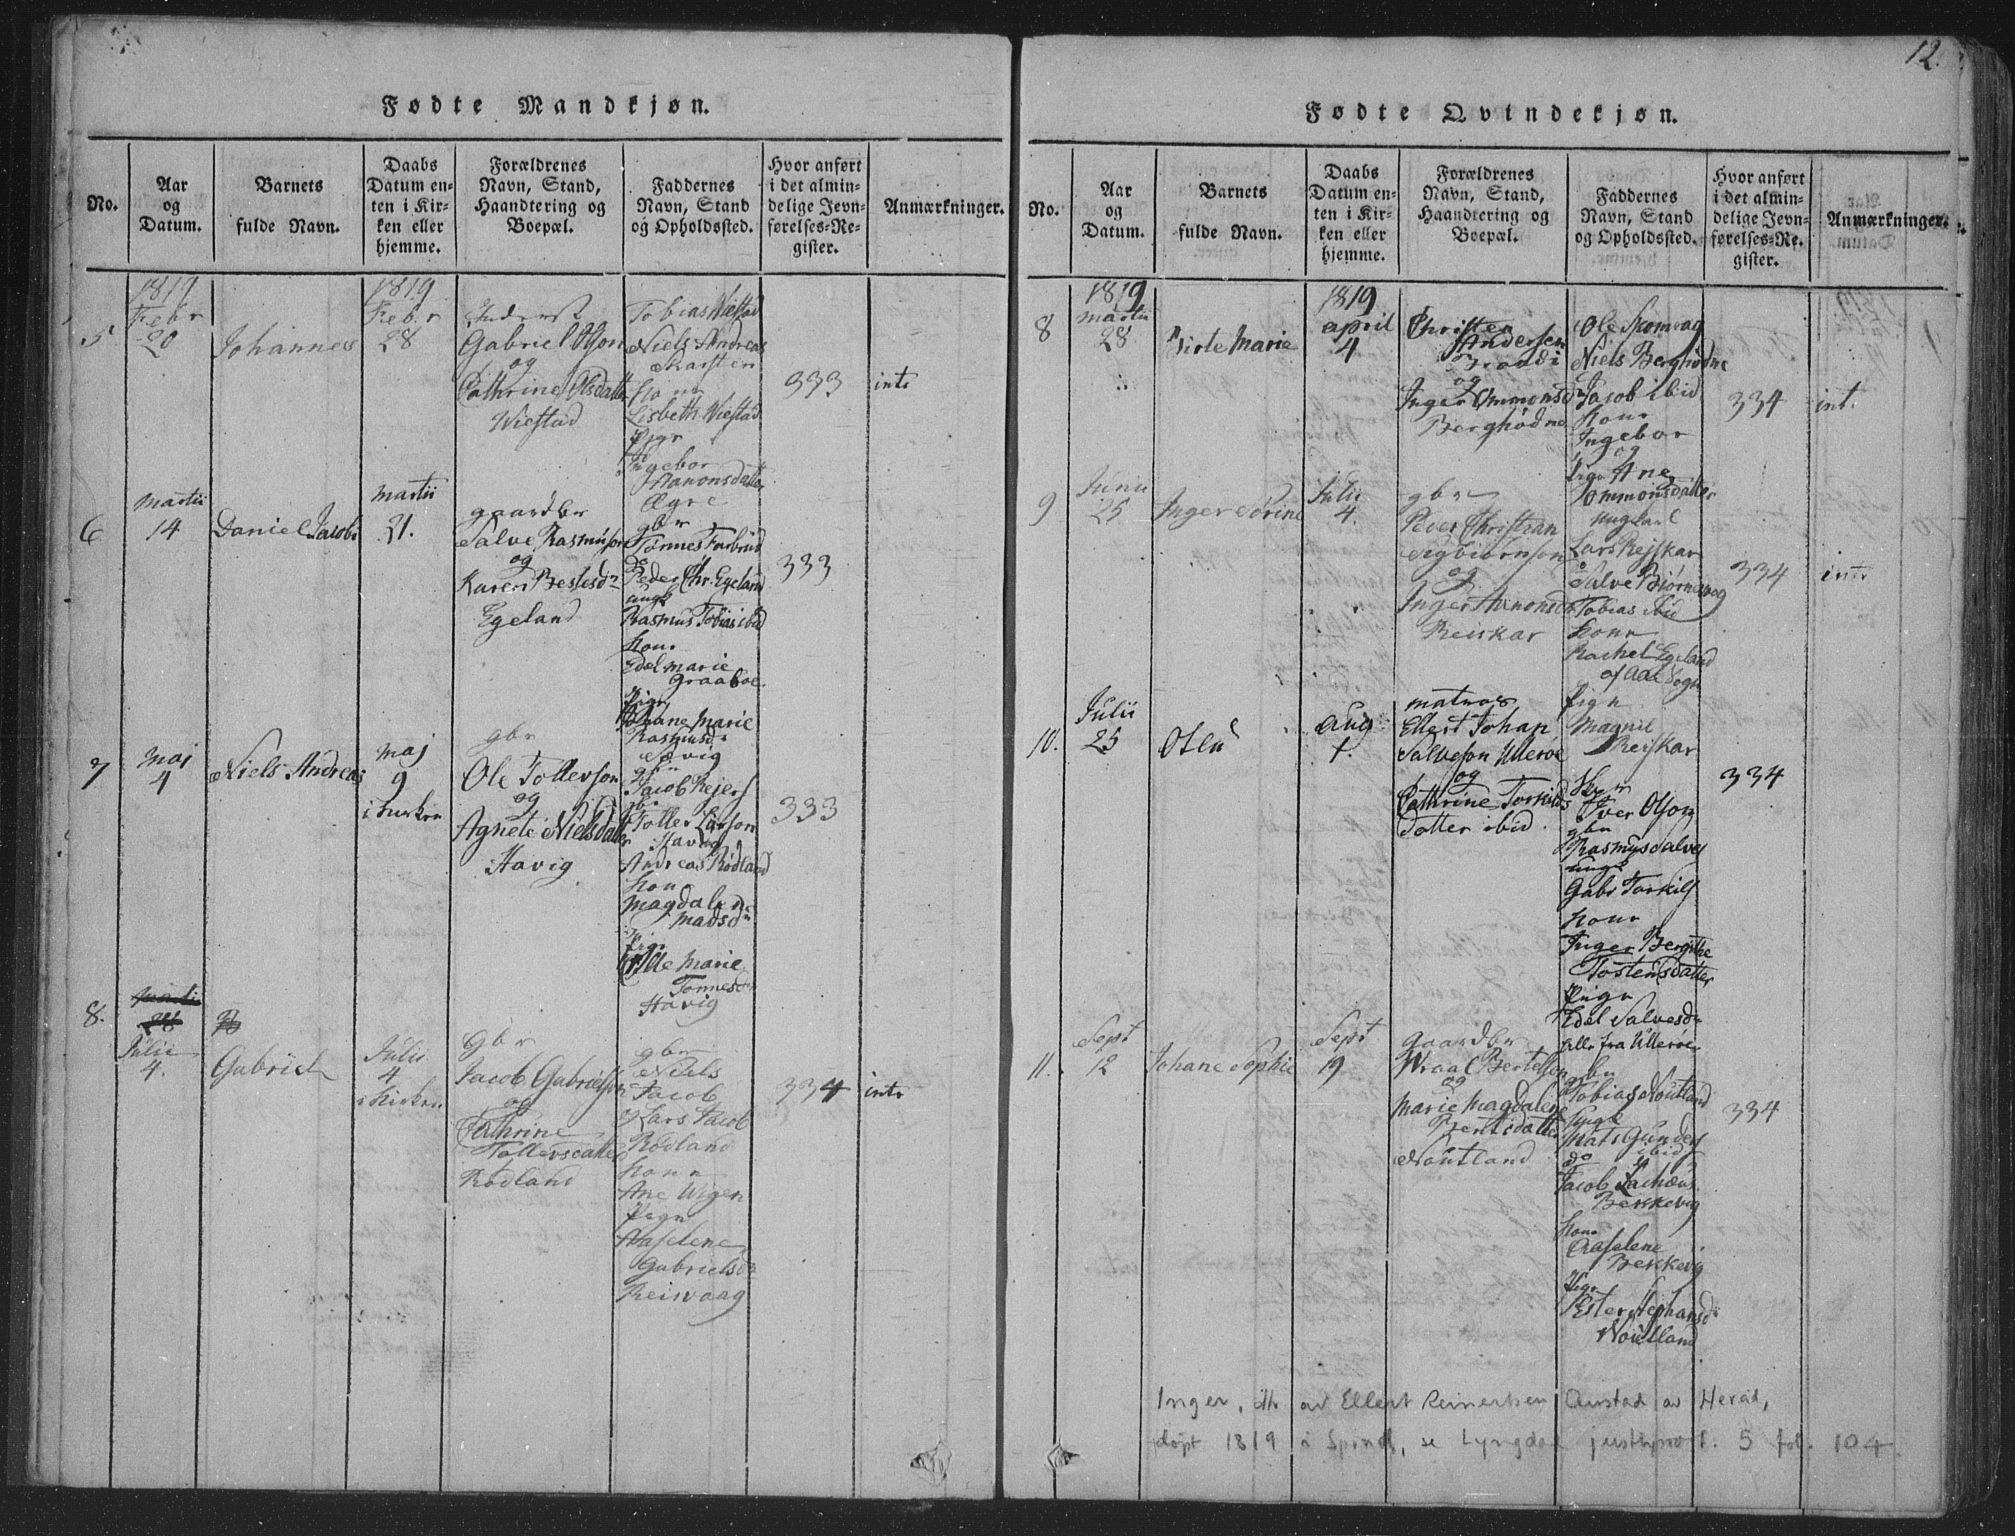 12.
Fødte Mandkjøn.
No.
Aar
og
Datum.
Barnets
fulde Navn.
Daabs
Datum en-
ten i Kir-
ken eller
hjemme.
Forældrenes
Navn, Stand,
Haandtering og
Boepæl.
Faddernes
Navn, Stand
og Opholdssted.
Hvor anført
i det almin-
delige Jevn-
førelses-Re-
gister.
Anmærkninger.
5
1819
Febr
20
Johannes
1819
Febr
28
Gabriel Olson
og
Cathrine Olsdatter
Wiestad
Tobias Wiestad
Niels Andreas
Karsten
Kone
Lisbeth Wiestad
Pige
Ingebor
Aanonsdatter
Øgre
333
intr
6
Martii
14
Daniel Jacob
Martii
21.
gaardbr
Salve Rasmuson
og
Karen Bentsd
Egeland
gbr
Tønnes
do
Peder Chr. Egeland
ungk
Rasmus Tobias ibid
Kone
Edel Marie
Graaboe
Pige
Johane Marie
Rasmusd
333
7
Maj
4
Niels Andreas
Maj
9
i Kirken
gbr
Ole Tollevson
og
Agnete Nielsdatter
Havig
gbr
Jacob
gbr
Tolle Larson
Havig
Andreas Rødland
Kone
Magdalene
Madsd
Pige
Marie
Tønnesd
Havig
333
8.
Julii
4.
Gabriel
Julii
4
i Kirken
gbr
Jacob Gabrielson
og
Cathrine
Tollevsdatter
Rødland
gbr
Niels
Jacob
og Lars Jacob
Rødland
Kone
Ane Wigen
Pige
Aaselene
Gabrielsd
Reisvaag
334
intr
Fødte Qvindekjøn.
No.
Aar
og
Datum.
Barnets
fulde Navn.
Daabs
Datum en-
ten i Kir-
ken eller
hjemme.
Forældrenes
Navn, Stand,
Haandtering og
Boepæl.
Faddernes
Navn, Stand
og Opholdssted.
Hvor anført
i det almin-
delige Jevn-
førelses-Re-
gister.
Anmærkninger.
8
1819
Martii
28
Birte Marie
1819
April
4
Christen
Andersen
og
Inger Ommonsd
Berghødne
Ole Skomrag
Niels Berghødne
Jacob ibid
Kone
Ingebor
og
Pige Ane
Ommonsdatter
334
int.
9
Junii
25
Inger Sørine
Julii
4.
gbr
Peer Christian
Sigbiørnson
og
Inger Aanonsd
Reiskar
Ungkarl
Lars Reiskar
Salve Biørnevog
Tobias ibid
Kone
Rachel Egeland
af Aae Sogn
Pige
Magnil
Reiskar
334
intr
10.
Julii
25
Aug
1.
matros
Ellert Johan
Salveson Ullerøe
og
Cathrine Torkilds
datter ibid.
Iver Olson
gbr
Rasmus Salves
ungk
Gabr Torkils
Kone
Inger Bergitte
Tostensdatter
Pige
Edel Salvesd
alle fra Ullerøe
334
11.
Sept
12
Johane Sophie
Sept
19
gaardbr
Wraal Bertelson
og
Marie Magdalene
Berntsdatter
Noutland
gbr
Tobias Noutland
ungk
Mats Gunders
ibid
do
Jacob Zachæus
Bekkevig
Kone
Aaselene
Bekkevig
Pige
Ester Stephansd
Noutland
334
Inger, dtr av Ellert Reinertsen Austad av Herad,
døpt 1819 i Spind, se Lyngdal justisprot. 5 fol. 104.